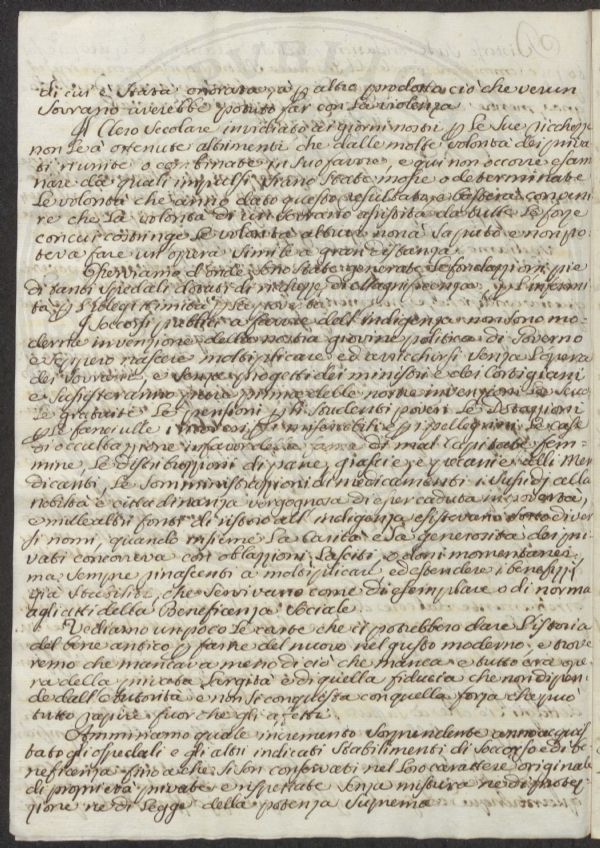 di cui è stata onorata già p altro prodotta ciò che verun
Sovrano averebbe potuto far con la violenza
Il Clero Secolare invidiato ai giorni nostri p le sue ricchezze
non le à ottenute altrimenti che dalle molte volontà dei priva
ti riunite o combinate in suo favore, e qui non occorre esami
nare da quali impulsi siano state mosse o determinate
le volontà che anno dato questo resultato, e basterà conveni
re che la volontà di un Sovrano assistita da tutte le forze
con cui costringe le volontà altrui non à saputo e non po
teva fare un'opera simile a gran distanza
Osserviamo d'onde sono state generate le fondazioni pie
di tanti Spedali dotati di ricchezze di magnificenza, p l'infermi
tà p l'illegittimità p la povertà
I soccorsi pubblici a favore dell'indigenza non sono mo
derna invenzione della nostra giovine politica di Governo
e seppero nascere moltiplicare, ed arricchirsi senza l'opera
dei Sovrani, e senza progetti dei ministri e dei Cortigiani
e sussisteranno prima delle nostre invenzioni le scuo
le gratuite le pensioni p gli studenti poveri le Dotazioni
p le fanciulle i ricoveri p i miserabili e p i pellegrini le case
di occultazione in favor della fama di mal capitate fem
mine, le distribuzioni di pane, giacie, e p alli Men
dicanti, le somministrazioni di medicamenti i sussidj alla
nobiltà e cittadinanza vergognosa di esser caduta in povertà,
e mille altri fonti di ristoro all'indigenza esistevano sotto diver
si nomi, quando insieme la carità e la generosità dei pri
vati concorreva con oblazioni lasciti o doni momentanei
ma sempre rinascenti a moltiplicare ed estendere i benefizzi
già stabiliti, che servivano come di esemplare o di norma
agli atti della Beneficenza Sociale
Vediamo un poco le carte che ci potrebbero dare l'istoria
del bene antico p farne del nuovo nel gusto moderno e trove
remo che mancava meno di ciò che manca e tutto era ope
ra della privata largità e di quella fiducia che non dipen
de dall'autorità e non si conquista con quella forza che può
tutto rapire fuor che gli affetti
Ammiriamo quale incremento sorprendente anno acquis
tato gli ospedali e gli altri indicati stabilimenti di soccorso e di be
neficenza fino a che si son conservati nel loro carattere originale
di proprietà private e rispettate senza mistura nè di protez
zione nè di legge della potenza suprema